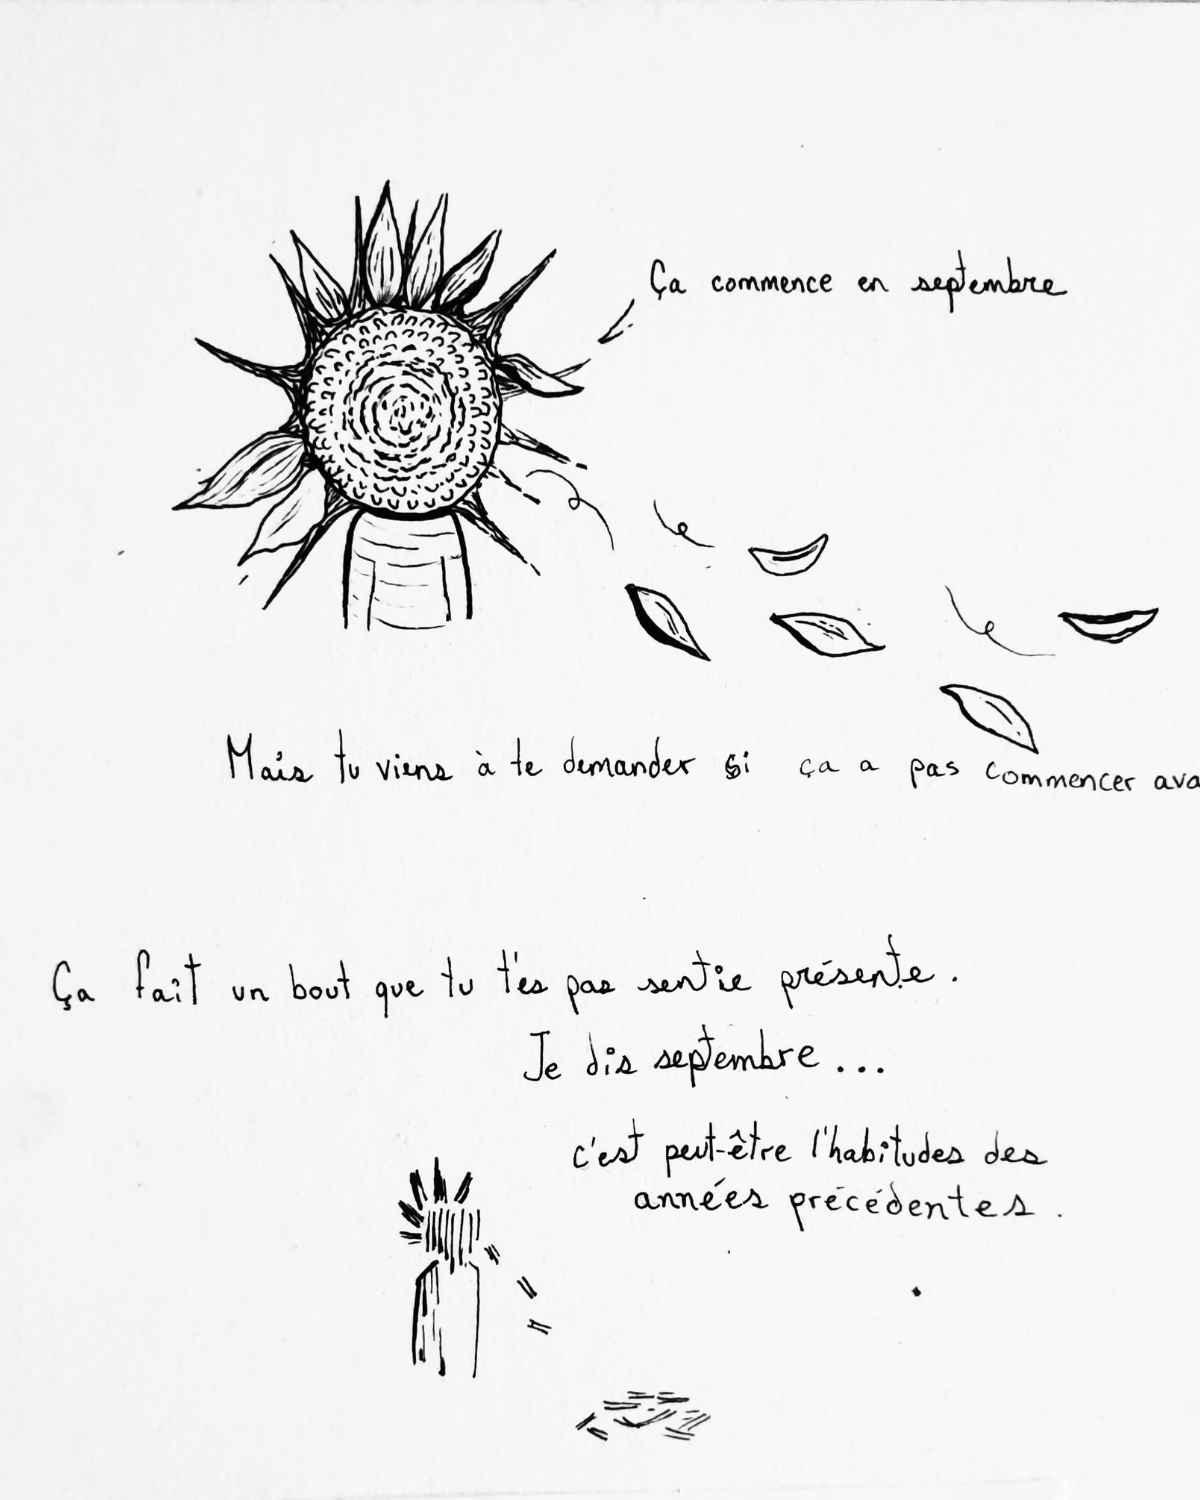 Ça commence en septembre
Mais tu viens à te demander si ça a pas commencer
Ça fait un bout que tu t'es pas sentie présente.
Je dis septembre...
c'est peut-être l'habitudes des
années précédentes.